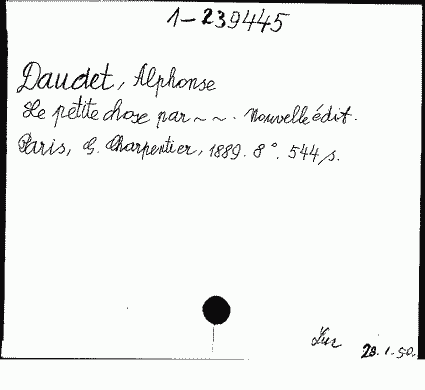 1-239445
Daudet, Alphonse
Le petite chose par ~ ~. Nouvelle édit.
Paris, G. Charpentier, 1889. 8°. 544 s.
28.1.50.